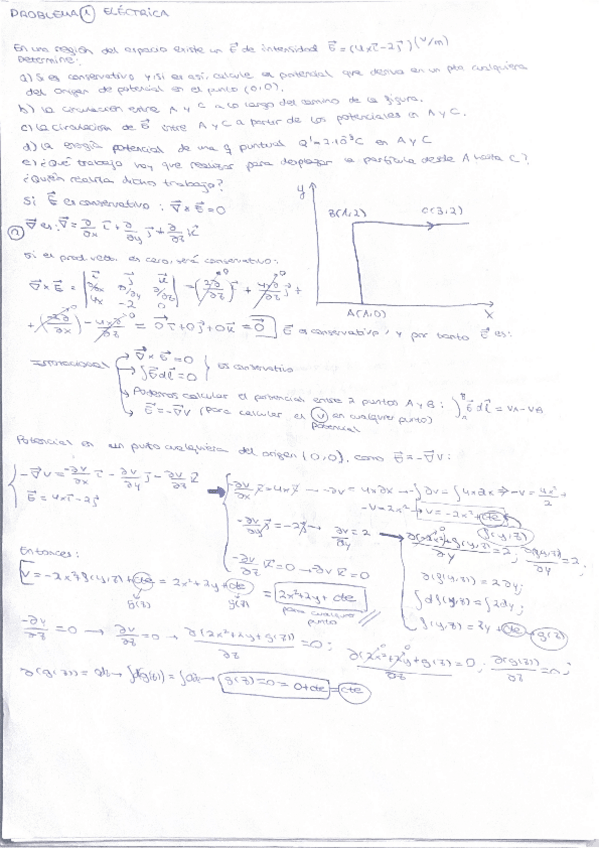 PROBLEMA ① ELÉCTRICA
En una región del espacio existe un E⃗ de intensidad E⃗ = (4x i⃗ - 2 j⃗) (V/m)
Determine:
a) Si es conservativo y, si es así, calcule el potencial que deriva en un pto cualquiera
del origen de potencial en el punto (0,0).
b) La circulación entre A y C a lo largo del camino de la figura.
c) La circulación de E⃗ entre A y C a partir de los potenciales en A y C.
d) La energía potencial de una q puntual en A y C
e) ¿Qué trabajo hay que realizar para desplazar la partícula desde A hasta C?
¿Quién realiza dicho trabajo?
Si E⃗ es conservativo: ∇⃗ × E⃗ = 0
∇⃗ es: ∇⃗ = ∂/∂x i⃗ + ∂/∂y j⃗ + ∂/∂z k⃗
y
B(1,2)
C(3,2)
A(1,0)
x
Si el producto es cero, será conservativo:
∇⃗ × E⃗ = | i⃗ j⃗ k⃗ | ∂/∂x ∂/∂y ∂/∂z | 4x -2 0 |
= 0⃗ i + 0 j + 0 k = 0⃗ E⃗ es conservativo, y por tanto E⃗ es:
Irrotacional
∇⃗ × E⃗ = 0
∫ E⃗ dl⃗ = 0
es conservativo
Podemos calcular el potencial entre 2 puntos A y B: ∫ E⃗ dl⃗ = VA - VB
E⃗ = -∇⃗V (para calcular el V en cualquier punto)
Potencial
Potencial en un punto cualquiera del origen (0,0), como E⃗ = -∇⃗V:
-∇⃗V = -∂V/∂x i⃗ - ∂V/∂y j⃗ - ∂V/∂z k⃗
E⃗ = 4x i⃗ - 2 j⃗
-∂V/∂x i⃗ = 4x i⃗ → -∂V = 4x ∂x → -∫∂V = ∫4x ∂x ⇒ -V = 4x²/2 +
-V = 2x² → V = -2x² + cte
g(y,z)
-∂V/∂y j⃗ = -2 j⃗ → ∂V/∂y = 2
-∂V/∂z k⃗ = 0 → ∂V k⃗ = 0
∂(-2x² + g(y,z))/∂y = 2; ∂g(y,z)/∂y = 2;
∂(g(y,z)) = 2∂y;
∫dg(y,z) = ∫2dy;
g(y,z) = 2y + cte → g(z)
Entonces:
V = -2x² + g(y,z) + cte = 2x² + 2y + cte = 2x² + 2y + cte
g(z) g(z)
para cualquier
punto
-∂V/∂z = 0 → ∂V/∂z = 0 → ∂(2x² + 2y + g(z))/∂z = 0; ∂(2x² + 2y + g(z))/∂z = 0; ∂(g(z))/∂z = 0;
→ g(z) = 0 = 0 + cte = cte